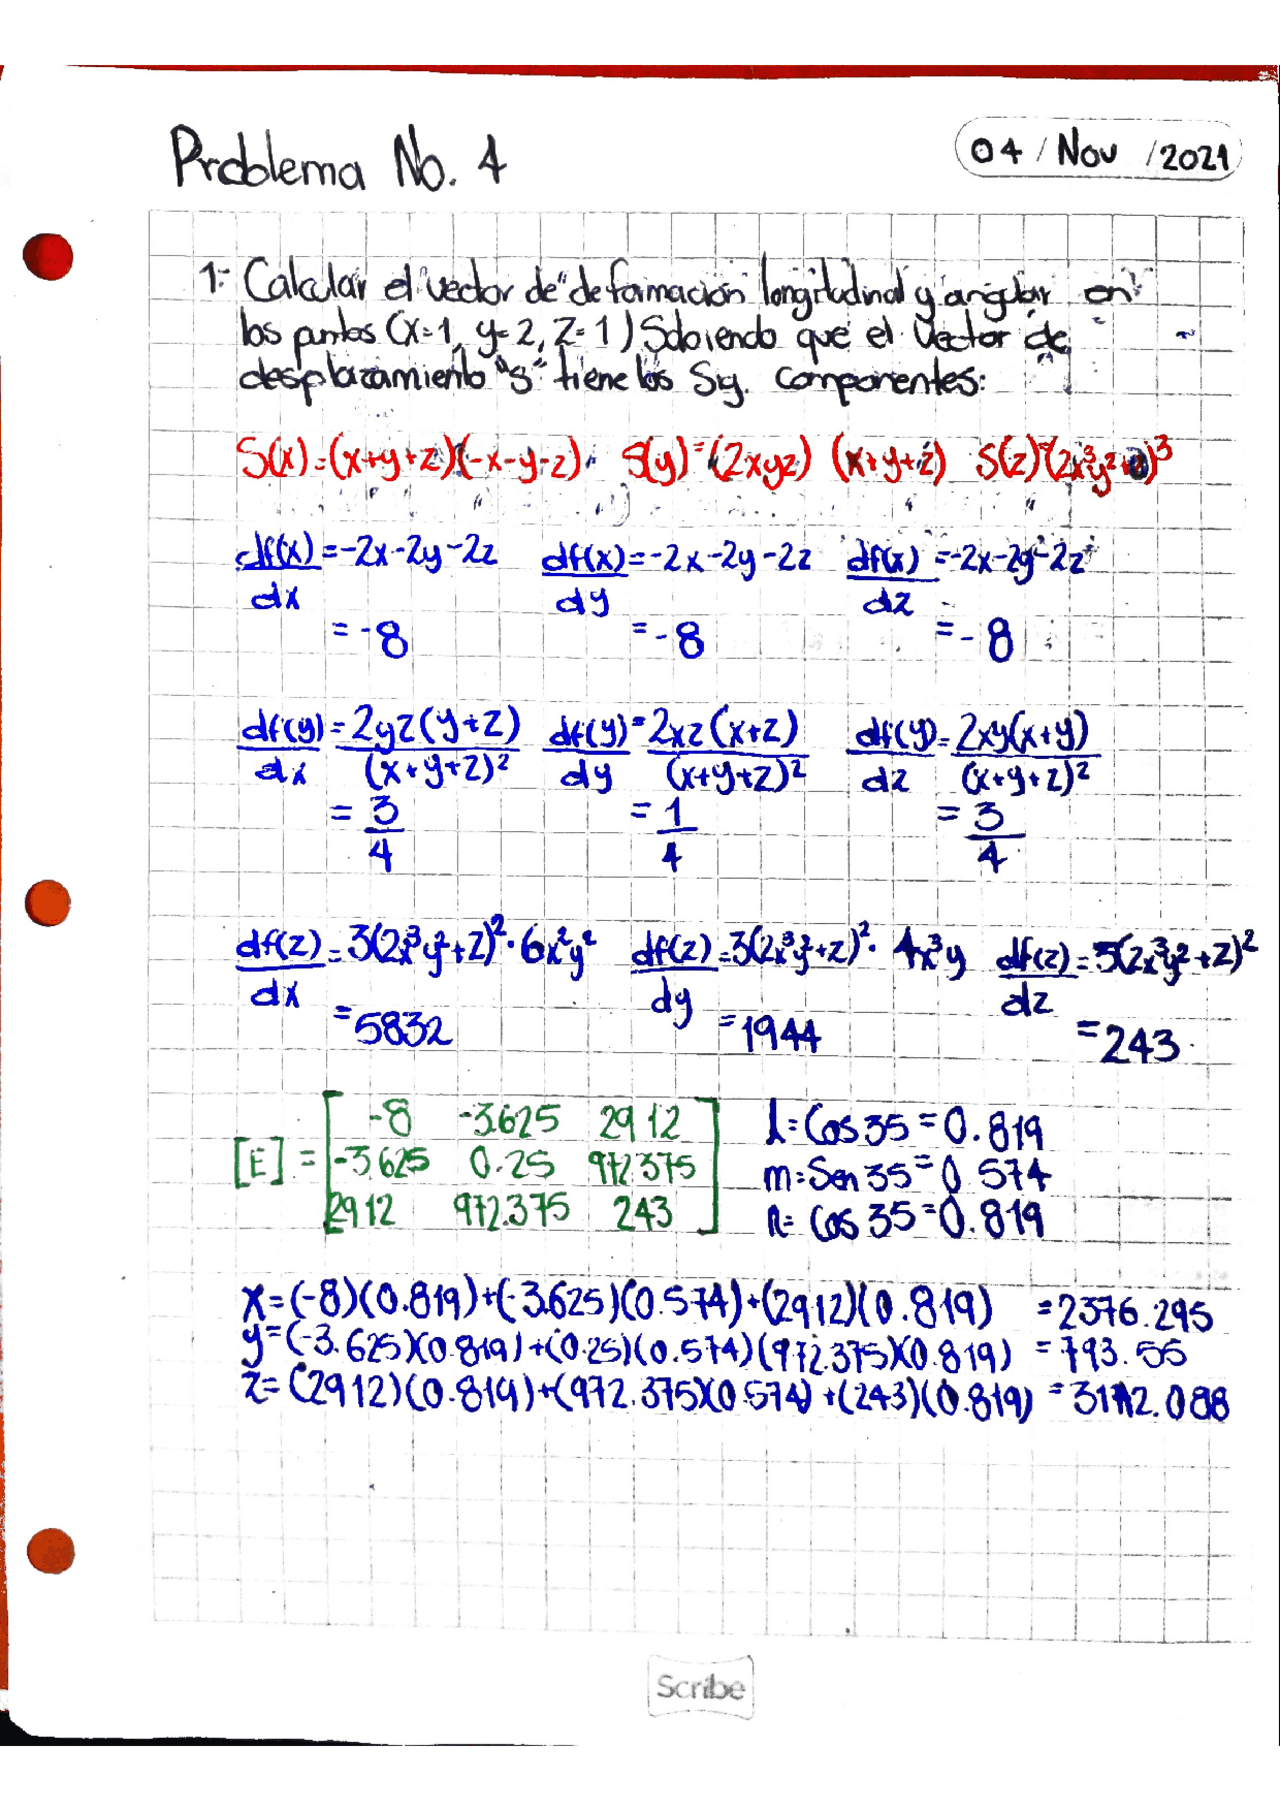 Problema No. 4
04 / Nov / 2021
1.- Calcular el vector de deformación longitudinal y angular en
los puntos (x=1, y=2, z=1) Sabiendo que el vector de
desplazamiento "s" tiene los Sig. componentes:
S(x)=(x+y+z)(-x-y-z) S(y)=(2xyz) (x+y+z) S(z)=(2x³y²+z)³
df(x)/dx = -2x-2y-2z df(x)/dy = -2x-2y-2z df(x)/dz = -2x-2y-2z
= -8 = -8 = -8
df(y)/dx = 2yz(y+z)/(x+y+z)² df(y)/dy = 2xz(x+z)/(x+y+z)² df(y)/dz = 2xy(x+y)/(x+y+z)²
= 3/4 = 1/4 = 3/4
df(z)/dx = 3(2x³y²+z)²·6x²y² df(z)/dy = 3(2x³y²+z)²·4x³y df(z)/dz = 3(2x³y²+z)²
= 5832 = 1944 = 243
-8 -3.625 2912 l= Cos 35 = 0.819
[E] = -3.625 0.25 972.375 m= Sen 35 = 0.574
2912 972.375 243 n= Cos 35 = 0.819
x=(-8)(0.819)+(-3.625)(0.574)+(2912)(0.819) = 2376.295
y=(-3.625)(0.819)+(0.25)(0.574)(972.375)(0.819) = 793.55
z=(2912)(0.819)+(972.375)(0.574)+(243)(0.819) =
Scribe